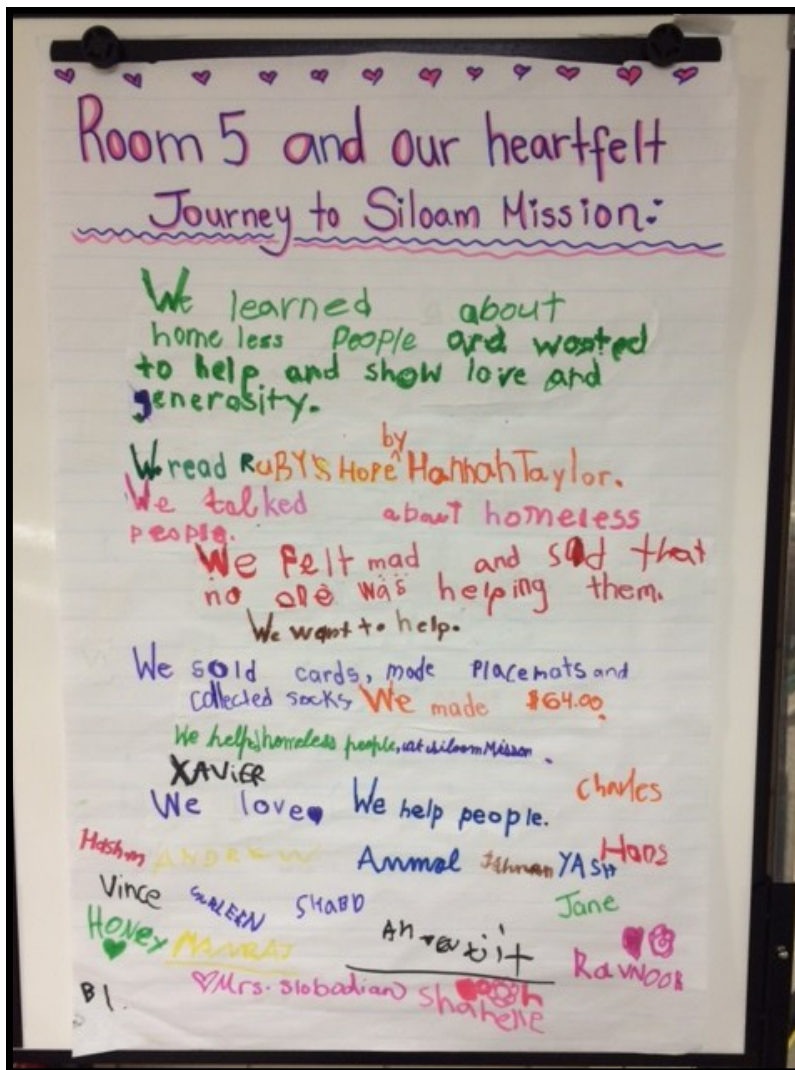 Room 5 and our heartfelt
Journey to Siloam Mission:
We learned about
homeless people and wanted
to help and show love and
generosity.
by
We read RuBY'S HOPE ^ Hannah Taylor.
We talked about homeless
people.
We felt mad and sad that
no one was helping them.
We want to help.
We sold cards, made Placemats and
collected socks We made $64.00.
We help homeless people, at siloam Misson.
XAViER
Charles
We love We help people.
Hashm ANDREW Anmol YASH Hans
Vince SHABD Jane
HONEY MANRAJ
RavNOOR
Mrs. Slobodian Shanelle
B I.